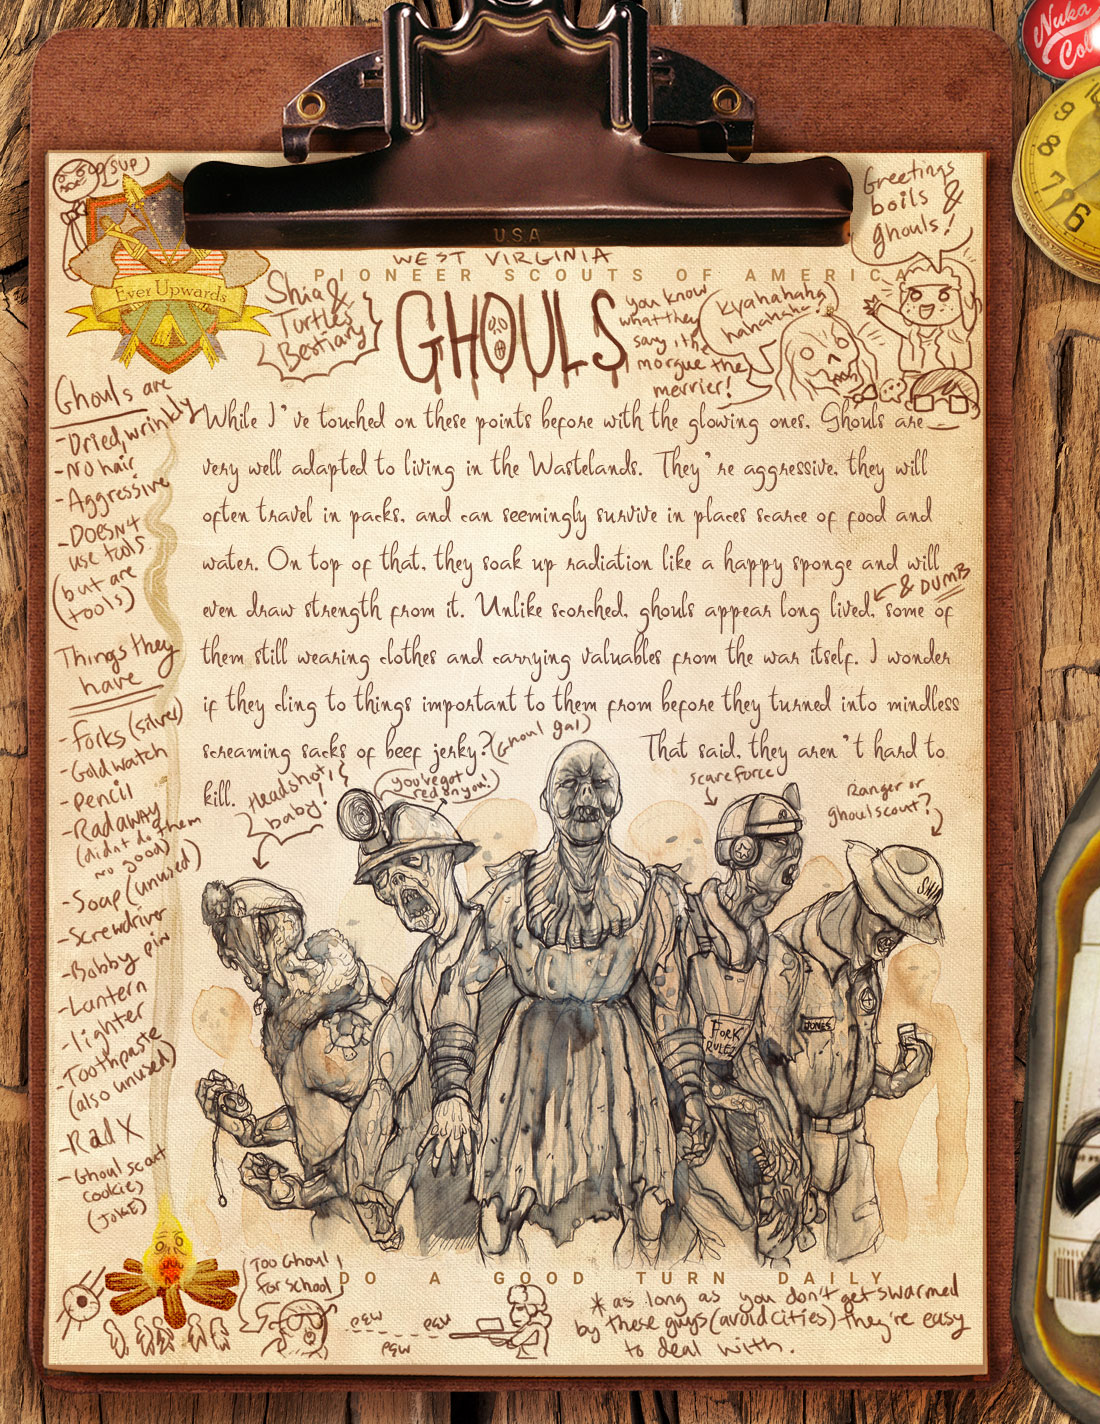 Nuka
Col
9
8
7
6
(SUP)
U.S.A.
Greetings
boils &
ghouls!
WEST VIRGINIA
PIONEER SCOUTS OF AMERICA
Ever Upwards
Shia &
Turtles
Bestiary
GHOULS
you know
what they
say, the
morgue the
merrier!
Kyahahaha
hahahaha!
While I've touched on these points before with the glowing ones. Ghouls are
very well adapted to living in the Wastelands. They're aggressive, they will
often travel in packs, and can seemingly survive in places scarce of food and
water. On top of that, they soak up radiation like a happy sponge and will
even draw strength from it. Unlike scorched, ghouls appear long lived, some of
& DUMB
them still wearing clothes and carrying valuables from the war itself. I wonder
if they cling to things important to them from before they turned into mindless
screaming sacks of beef jerky? That said, they aren't hard to
kill.
Ghouls are
-Dried, wrinkly
-No hair
-Aggressive
-Doesn't
use tools
(but are
tools)
Things they
have
-Forks (silver)
-Gold watch
-Pencil
-Radaway
(didnt do them
no good)
-Soap (unused)
-Screwdriver
-Bobby pin
-Lantern
-lighter
-Toothpaste
(also unused)
-Rad X
-Ghoul scout
cookies
(JOKE)
Headshot,
baby!
you've got
red on you!
(Ghoul gal)
scare force
Ranger or
ghoul scout?
FORK
RULEZ
JONES
Too Ghoul
for school
DO A GOOD TURN DAILY
pew
pew
pew
* as long as you don't get swarmed
by these guys (avoid cities) they're easy
to deal with.